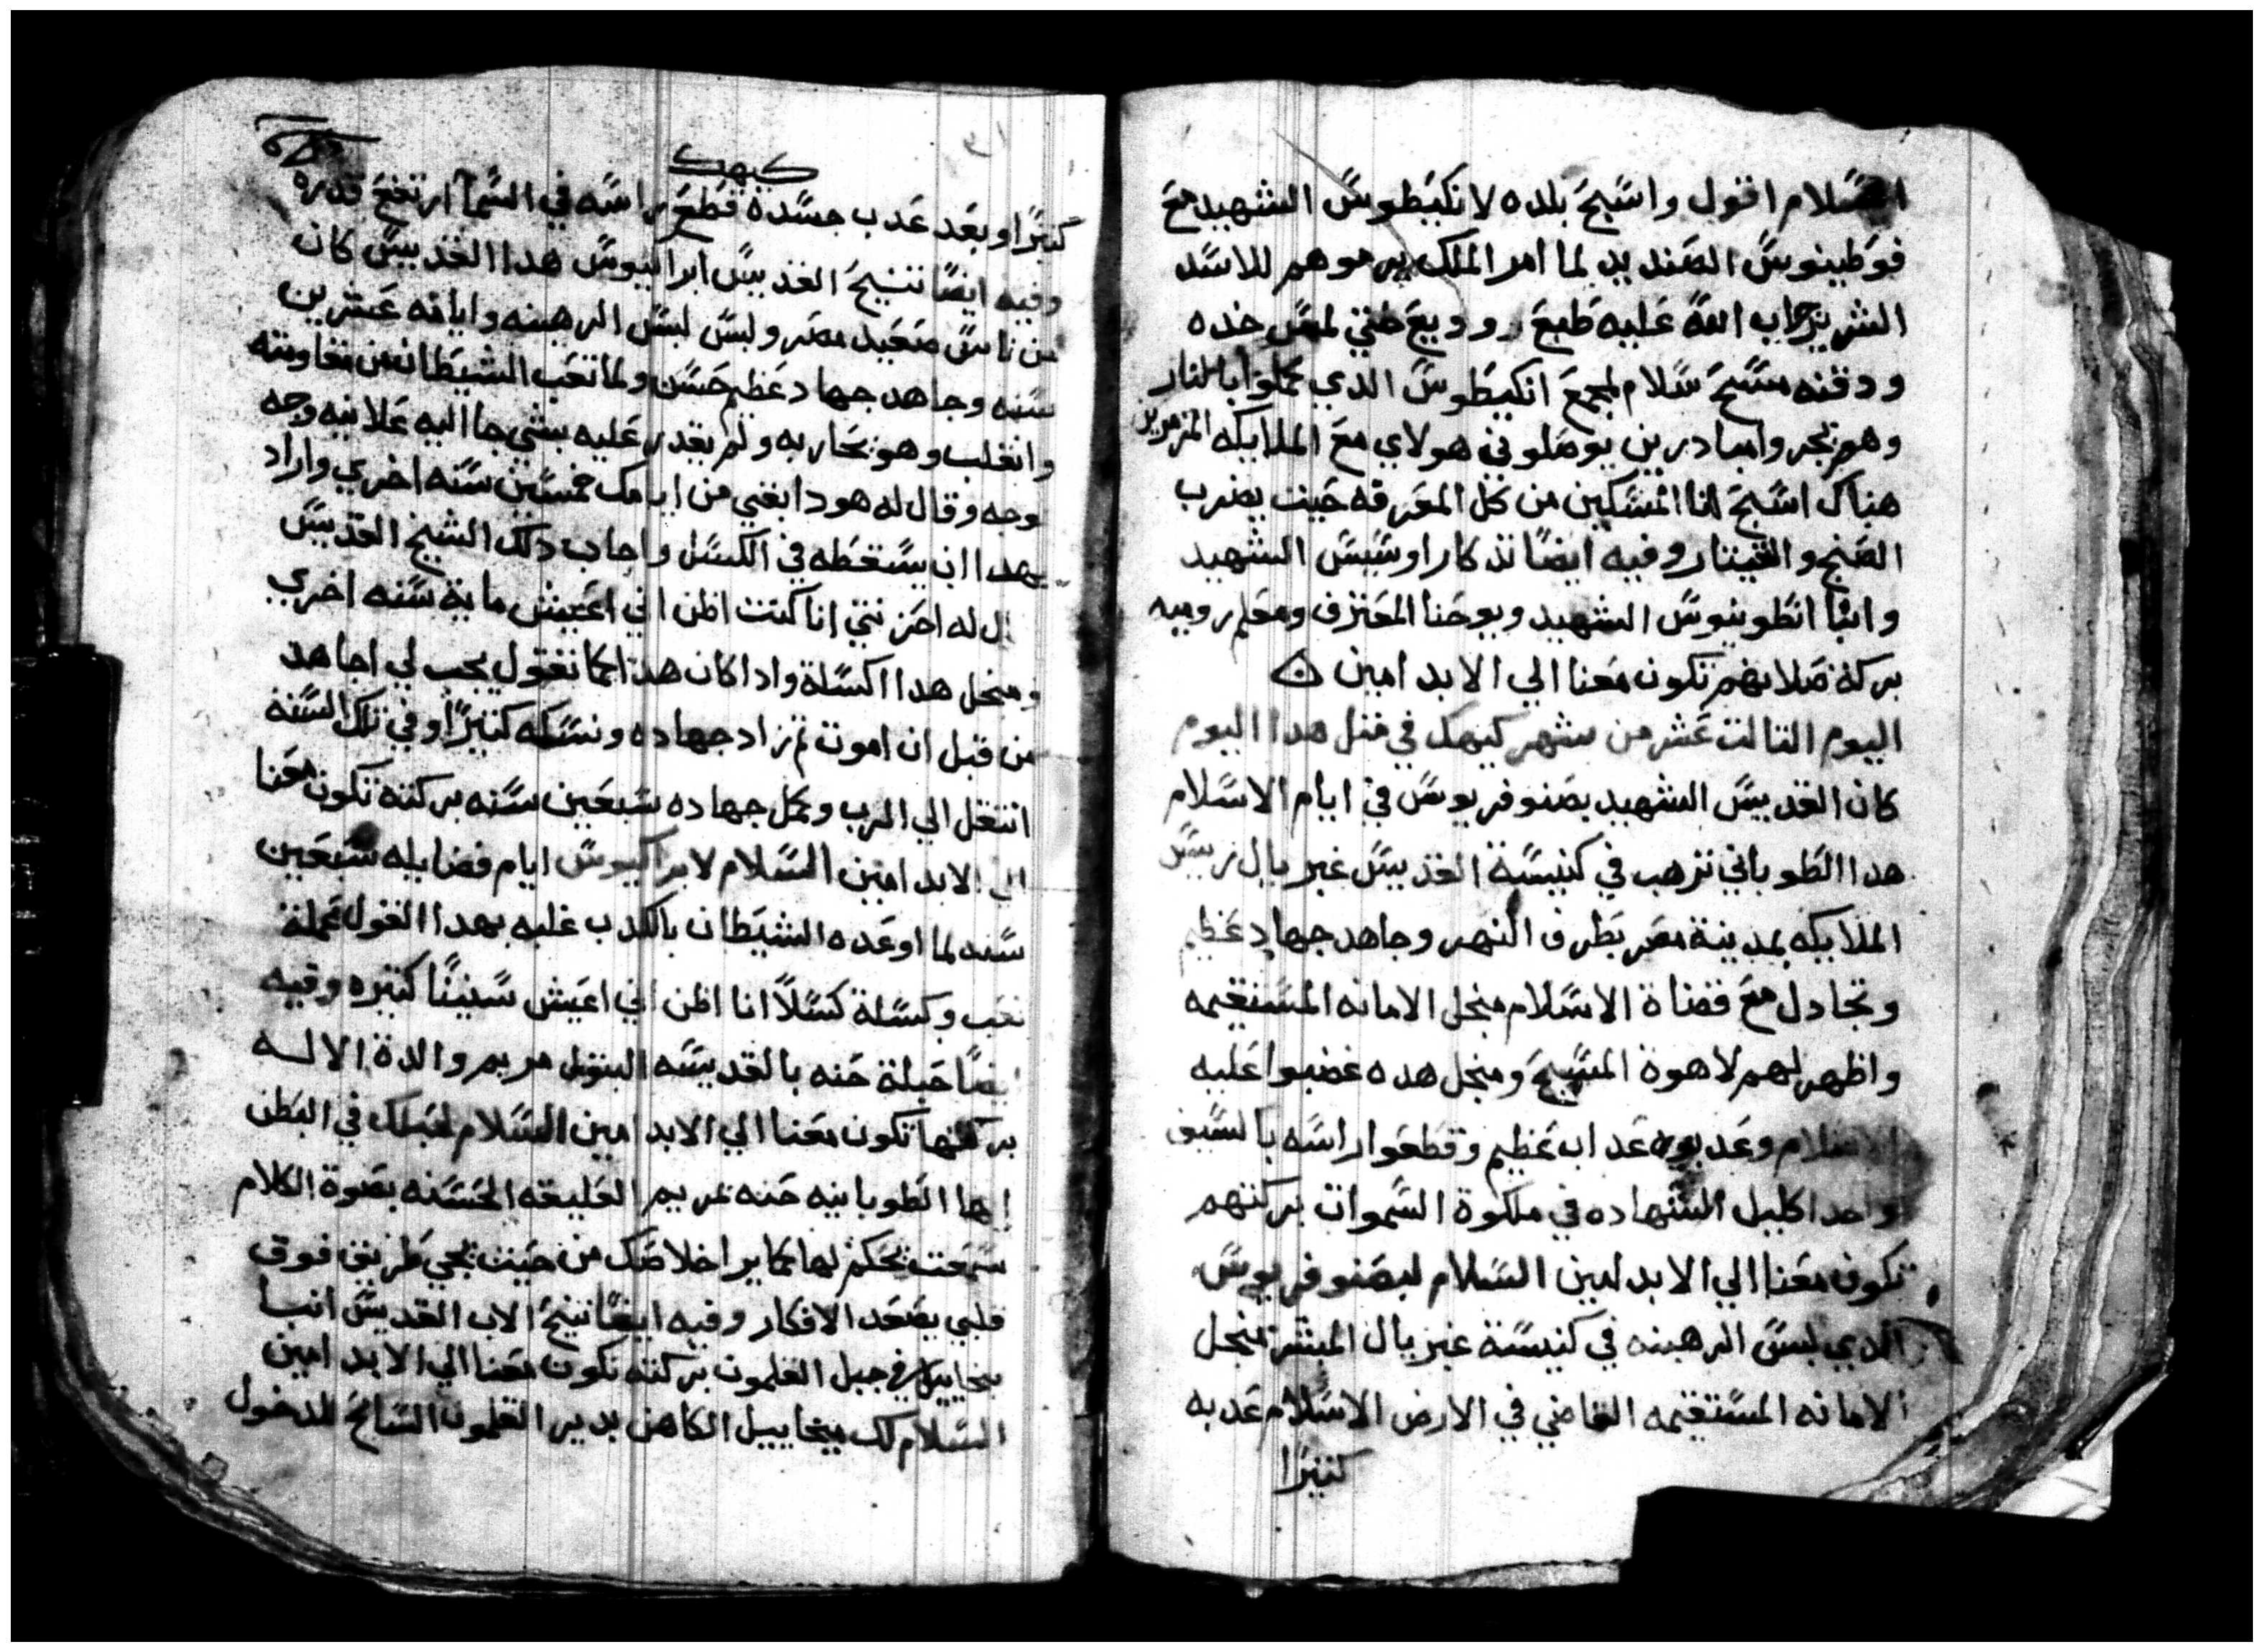 السلام اقول واسبح بلده لانكيطوس الشهيد مع
فوطينوس الصنديد لما امر الملك يرموهم للاسد
الشرير جاب الله عليه طبع وديع حتي لمس خده
ودقنه سبح سلام لمجمع انكيطوس الدي كملوا بالنار
وهم نجر وامبادرين يوصلوني هولاي مع الملايكه المزمرين
هناك اسبح انا المسكين من كل المعرفه حيت يضرب
الصنج والقيتار وفيه ايضا تدكار اوسيس الشهيد
وانبا انطونيوس الشهيد ويوحنا المعترف ومعلم روميه
بركة صلاتهم تكون معنا الي الابد امين
اليوم التالت عشر من شهر كيهك في متل هدا اليوم
كان القديس الشهيد بصنوفريوس في ايام الاسلام
هدا الطوباني ترهب في كنيسة القديس غبريال رييس
الملايكه بمدينة مصر بطرف النهر وجاهد جهاد عظيم
وتجادل مع قضاة الاسلام منجل الامانه المستقيمه
واظهر لهم لاهوة المسيح ومنجل هده غضبوا عليه
الاسلام وعدبوه عداب عظيم وقطعوا راسه بالسيف
واخد اكليل الشهاده في ملكوة السموات بركتهم
تكون معنا الي الابد امين السلام لبصنوفريوس
الدي لبس الرهبنه في كنيسة غبريال المبشر منجل
الامانه المستقيمه القاضي في الارض الاسلام عدبه
كتيرا
كيهك
كتيرا وبعد عدب جسده قطع راسه في السما ارتفع قدره
وفيه ايضا تنيح القديس ابراكيوس هدا القديس كان
من ناس صعيد مصر ولبس لبس الرهبنه وايامه عشرين
سنه وجاهد جهاد عظيم حسن ولما تعب الشيطان من مقاومته
وانغلب وهو يحاربه ولم يقدر عليه بشي جا اليه علانيه وجه
لوجه وقال له هودا بقي من ايامك خمسين سنه اخري واراد
بهدا ان يسقطه في الكسل واجاب دلك الشيخ القديس
قال له احزنتني انا كنت اظن اني اعيش ماية سنه اخري
ومنجل هدا اكسلة وادا كان هدا كما تقول يجب لي اجاهد
من قبل ان اموت تم زاد جهاده ونسكه كتيرا وفي تلك السنه
انتقل الي الرب وكمل جهاده سبعين سنه بركته تكون معنا
الي الابد امين السلام لابراكيوس ايام فضايله سبعين
سنه لما اوعده الشيطان بالكدب عليه بهدا القول عملة
تعب وكسلة كسلا انا اظن اني اعيش سنينا كتيره وفيه
ايضا حبلة حنه بالقديسه البتول مريم والدة الاله
بركتها تكون معنا الي الابد امين السلام لحبلك في البطن
ايها الطوبانيه حنه بمريم الخليقه الحسنه بصوة الكلام
سمعت بحكم لها كما يرا خلاصك من حيت يجي طريق فوق
قلبي بصعد الافكار وفيه ايضا تنيح الاب القديس انبا
ميخاييل في جبل القلمون بركته تكون معنا الي الابد امين
السلام لك ميخاييل الكاهن بدير القلمون السايح المدخول